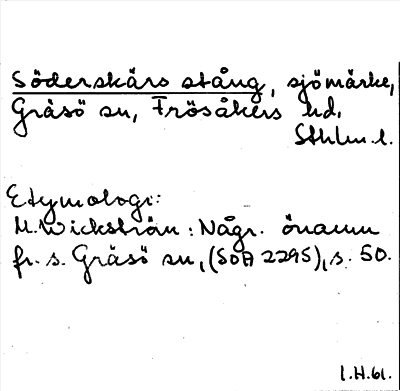 Söderskärs stång, sjömärke,
Gräsö sn, Frösåkers hd,
Sthlm l.
Etymologi:
M. Wickström: Någr. önamn
fr. s. Gräsö sn, (SOA 2295), s. 50.
I.H.61.